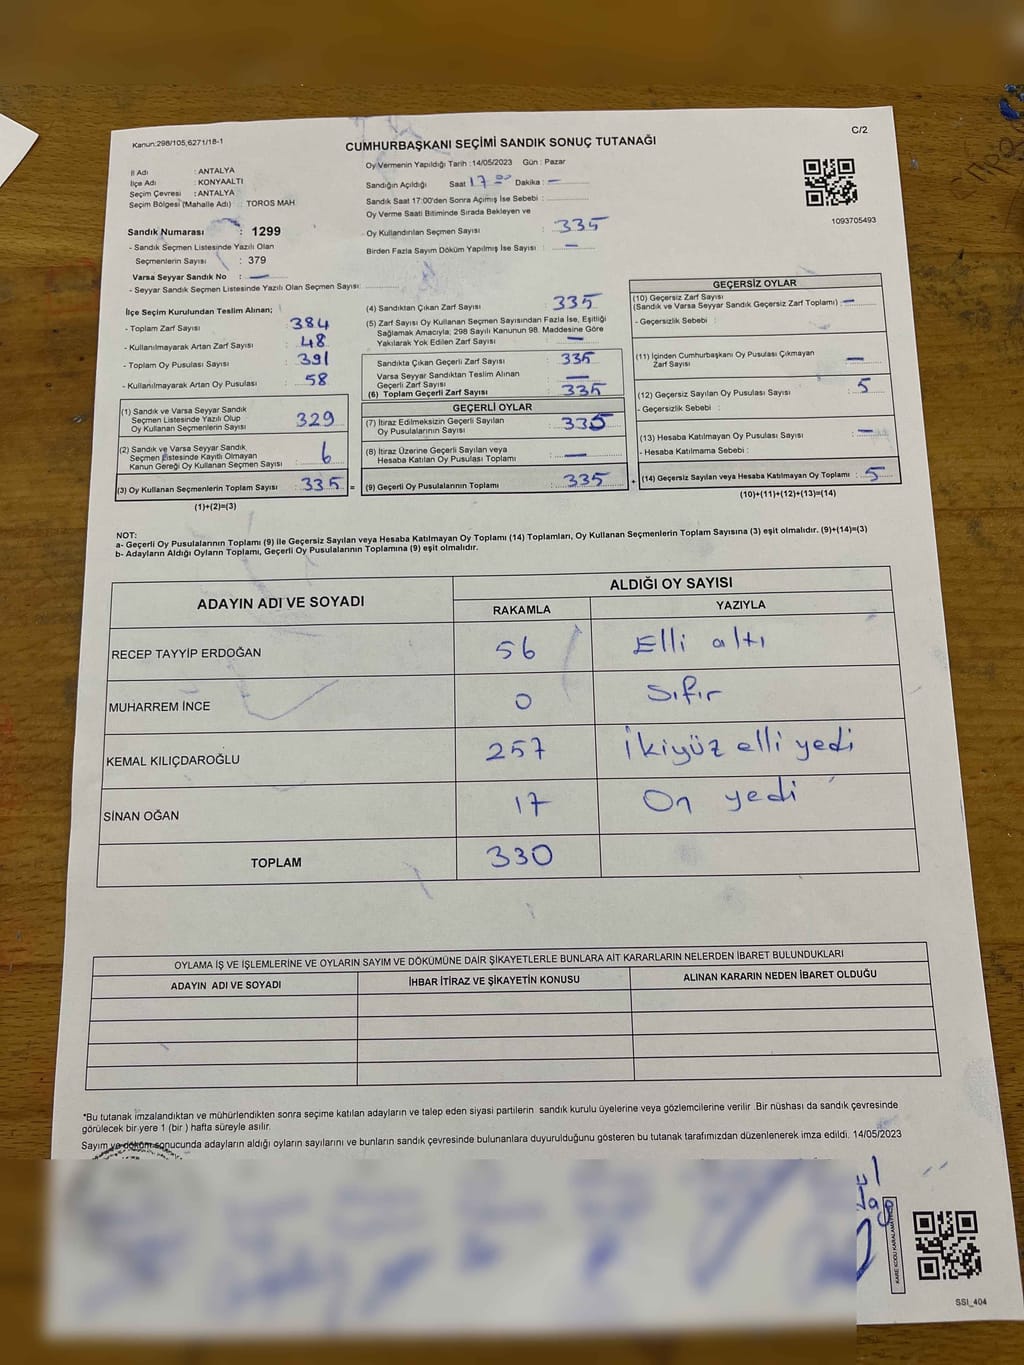 Kanun:298/105,6271/18-1
C/2
CUMHURBAŞKANI SEÇİMİ SANDIK SONUÇ TUTANAĞI
İl Adı : ANTALYA
İlçe Adı : KONYAALTI
Seçim Çevresi : ANTALYA
Seçim Bölgesi (Mahalle Adı) : TOROS MAH.
Sandık Numarası : 1299
- Sandık Seçmen Listesinde Yazılı Olan
Seçmenlerin Sayısı : 379
Varsa Seyyar Sandık No : —
- Seyyar Sandık Seçmen Listesinde Yazılı Olan Seçmen Sayısı:
Oy Vermenin Yapıldığı Tarih :14/05/2023 Gün : Pazar
Sandığın Açıldığı Saat 17 00 Dakika : —
Sandık Saat 17:00'den Sonra Açımış İse Sebebi :
Oy Verme Saati Bitiminde Sırada Bekleyen ve
Oy Kullandırılan Seçmen Sayısı : 335
Birden Fazla Sayım Döküm Yapılmış İse Sayısı : —
1093705493
İlçe Seçim Kurulundan Teslim Alınan;
- Toplam Zarf Sayısı : 384
- Kullanılmayarak Artan Zarf Sayısı : 48
- Toplam Oy Pusulası Sayısı : 391
- Kullanılmayarak Artan Oy Pusulası : 58
(1) Sandık ve Varsa Seyyar Sandık
Seçmen Listesinde Yazılı Olup
Oy Kullanan Seçmenlerin Sayısı : 329
(2) Sandık ve Varsa Seyyar Sandık
Seçmen Listesinde Kayıtlı Olmayan
Kanun Gereği Oy Kullanan Seçmen Sayısı : 6
(3) Oy Kullanan Seçmenlerin Toplam Sayısı : 335 =
(1)+(2)=(3)
(4) Sandıktan Çıkan Zarf Sayısı : 335
(5) Zarf Sayısı Oy Kullanan Seçmen Sayısından Fazla İse, Eşitliği
Sağlamak Amacıyla; 298 Sayılı Kanunun 98. Maddesine Göre
Yakılarak Yok Edilen Zarf Sayısı : —
Sandıkta Çıkan Geçerli Zarf Sayısı : 335
Varsa Seyyar Sandıktan Teslim Alınan
Geçerli Zarf Sayısı : —
(6) Toplam Geçerli Zarf Sayısı : 335
GEÇERLİ OYLAR
(7) İtiraz Edilmeksizin Geçerli Sayılan
Oy Pusulalarının Sayısı : 335
(8) İtiraz Üzerine Geçerli Sayılan veya
Hesaba Katılan Oy Pusulası Toplamı : —
(9) Geçerli Oy Pusulalarının Toplamı : 335 +
GEÇERSİZ OYLAR
(10) Geçersiz Zarf Sayısı
(Sandık ve Varsa Seyyar Sandık Geçersiz Zarf Toplamı) : —
- Geçersizlik Sebebi :
(11) İçinden Cumhurbaşkanı Oy Pusulası Çıkmayan
Zarf Sayısı : —
(12) Geçersiz Sayılan Oy Pusulası Sayısı : 5
- Geçersizlik Sebebi :
(13) Hesaba Katılmayan Oy Pusulası Sayısı : —
- Hesaba Katılmama Sebebi :
(14) Geçersiz Sayılan veya Hesaba Katılmayan Oy Toplamı : 5
(10)+(11)+(12)+(13)=(14)
NOT:
a- Geçerli Oy Pusulalarının Toplamı (9) ile Geçersiz Sayılan veya Hesaba Katılmayan Oy Toplamı (14) Toplamları, Oy Kullanan Seçmenlerin Toplam Sayısına (3) eşit olmalıdır. (9)+(14)=(3)
b- Adayların Aldığı Oyların Toplamı, Geçerli Oy Pusulalarının Toplamına (9) eşit olmalıdır.
ADAYIN ADI VE SOYADI
ALDIĞI OY SAYISI
RAKAMLA YAZIYLA
RECEP TAYYİP ERDOĞAN 56 Elli altı
MUHARREM İNCE 0 Sıfır
KEMAL KILIÇDAROĞLU 257 İkiyüz elli yedi
SİNAN OĞAN 17 On yedi
TOPLAM 330
OYLAMA İŞ VE İŞLEMLERİNE VE OYLARIN SAYIM VE DÖKÜMÜNE DAİR ŞİKAYETLERLE BUNLARA AİT KARARLARIN NELERDEN İBARET BULUNDUKLARI
ADAYIN ADI VE SOYADI İHBAR İTİRAZ VE ŞİKAYETİN KONUSU ALINAN KARARIN NEDEN İBARET OLDUĞU
*Bu tutanak imzalandıktan ve mühürlendikten sonra seçime katılan adayların ve talep eden siyasi partilerin sandık kurulu üyelerine veya gözlemcilerine verilir .Bir nüshası da sandık çevresinde
görülecek bir yere 1 (bir ) hafta süreyle asılır.
Sayım ve döküm sonucunda adayların aldığı oyların sayılarını ve bunların sandık çevresinde bulunanlara duyurulduğunu gösteren bu tutanak tarafımızdan düzenlenerek imza edildi. 14/05/2023
SSI_404